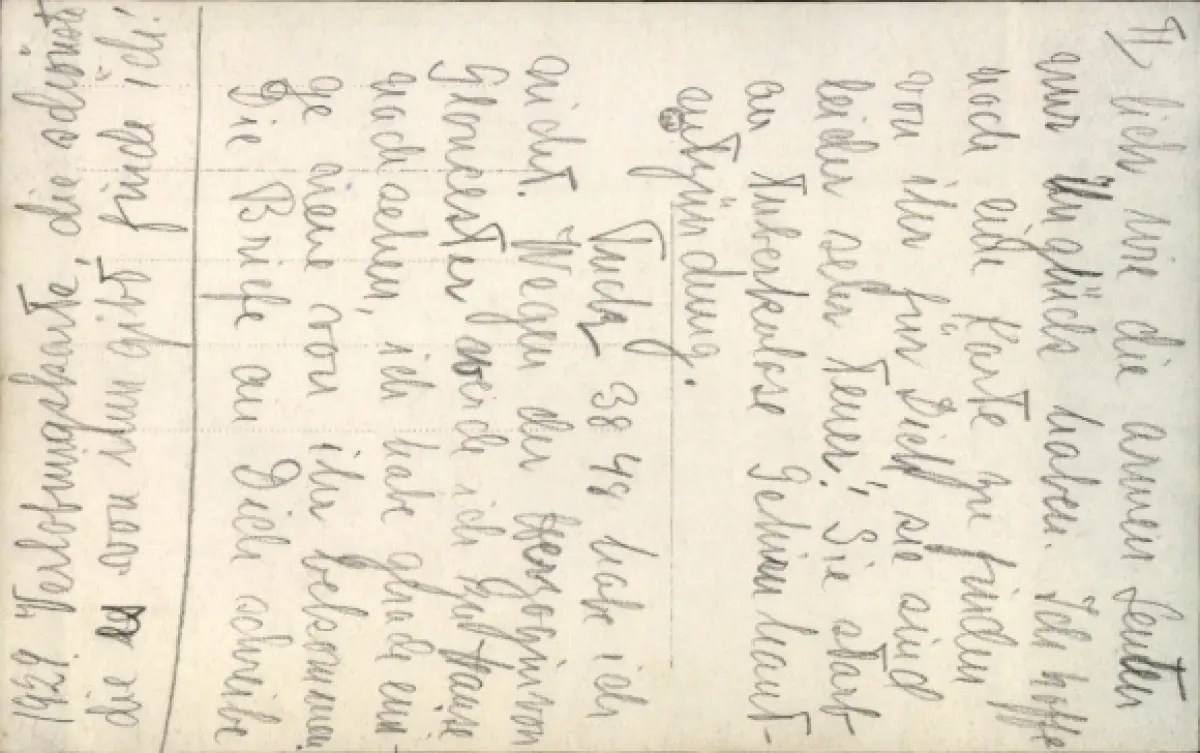 II) lich, wie die armen Leuten
nur Unglück haben. Ich hoffe
noch eine Karte zu finden
von ihr für Dich, sie sind
leider sehr teuer! Sie starb
an Tuberkulose Gehirnhaut-
entzündung.
Tuck 3848 habe ich
nicht. Wegen der Herzogin von
Gloucester werde ich zu Hause
nachsehen, ich habe grade eini-
ge neue von ihr bekommen.
Die Briefe an Dich schreibe
1929 Verlobungskarte, die schönste
die von ihm gibt finde ich!